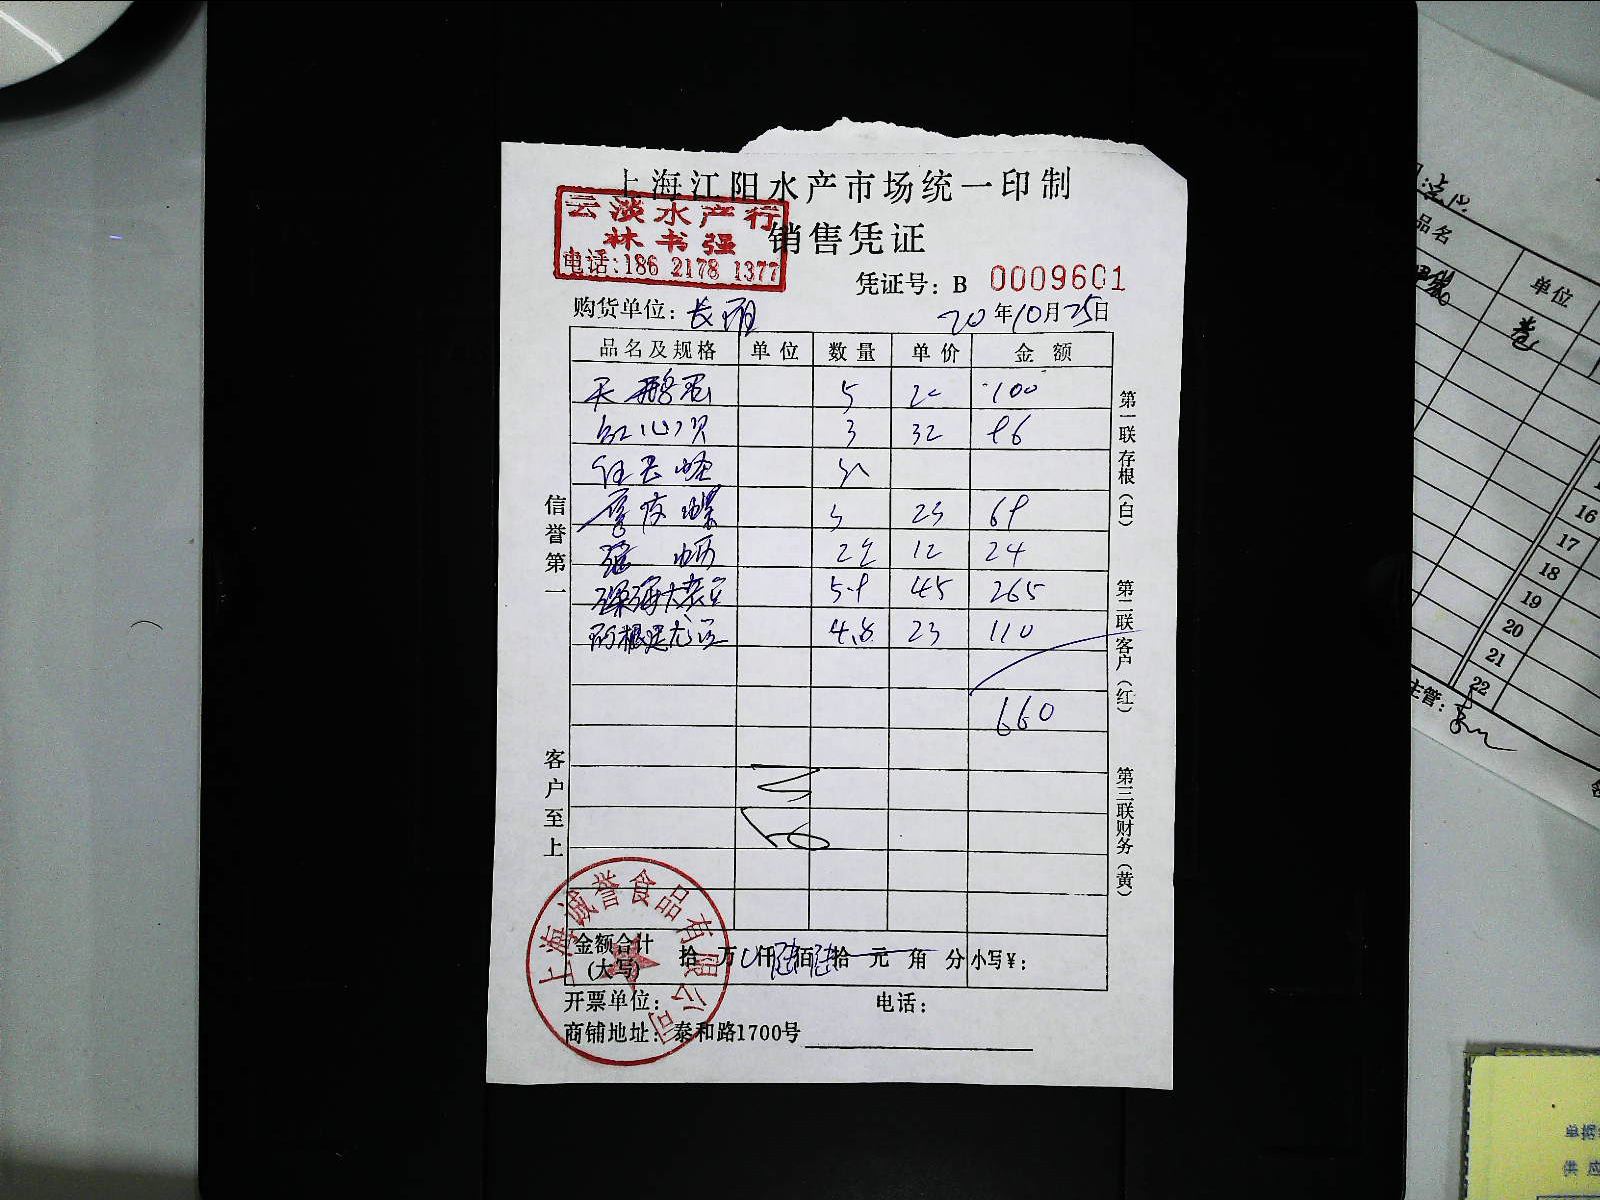 上海江阳水产市场统一印制
云淡水产行
林书强
电话:186 2178 1377
销售凭证
凭证号: B 0009601
购货单位: 长
20年10月25日
品名及规格 单位 数量 单价 金额
天鹅蛋 5 20 100
红心贝 3 32 96
3
螺 3 23 69
2 12 24
深海大 5.9 45 265
4.8 23 110
660
第一联存根(白)
第二联客户(红)
第三联财务(黄)
信誉第一
客户至上
金额合计(大写) 拾 万 仟陆佰陆拾 元 角 分 小写¥:
开票单位: 电话:
商铺地址: 泰和路1700号
上海诚誉食品有限公司
品名
单位
卷
16
17
18
19
20
21
22
主管:
单据
供应